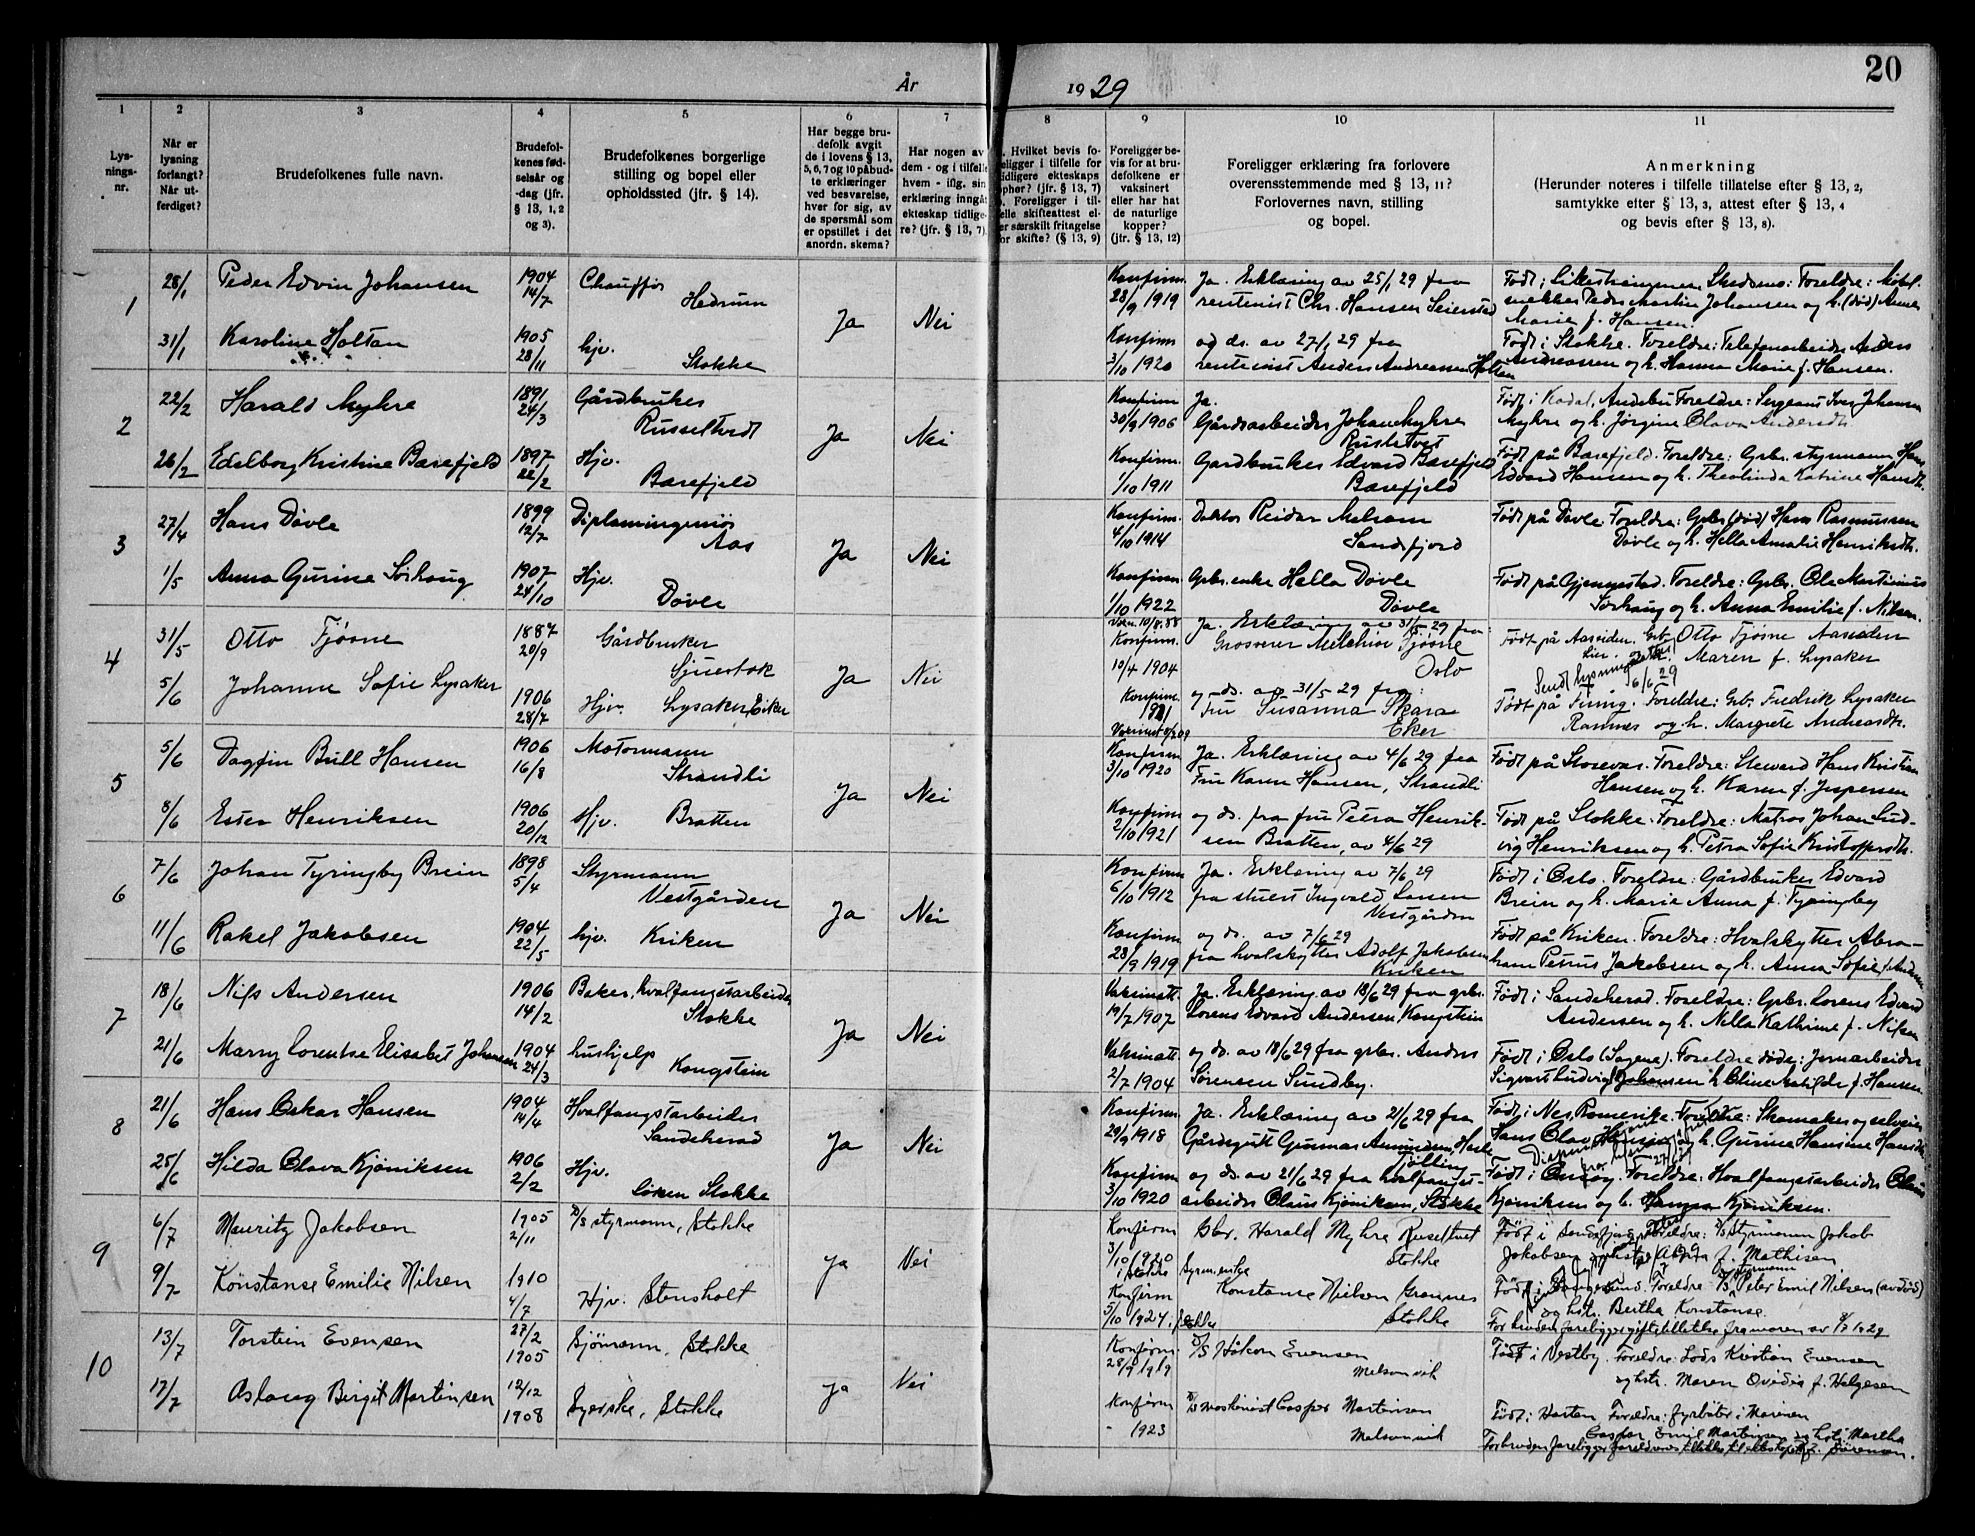 20
År 1929
1 2 3 4 5 6 7 8 9 10 11
Lysningsnr.
Når er lysning forlangt? Når utferdiget?
Brudefolkenes fulle navn.
Brudefolkenes fødselsår og -dag (jfr. § 13, 1, 2 og 3).
Brudefolkenes borgerlige stilling og bopel eller opholdssted (jfr. § 14).
Har begge brudefolk avgit de i lovens § 13, 5, 6, 7 og 10 påbudte erklæringer ved besvarelse, hver for sig, av de spørsmål som er opstillet i det anordn. skema?
Har nogen av dem - og i tilfelle hvem - iflg. sin erklæring inngått ekteskap tidligere? (jfr. § 13, 7).
Hvilket bevis foreligger i tilfelle for tidligere ekteskaps ophør? (jfr. § 13, 7) Foreligger i tilfelle skifteattest eller særskilt fritagelse for skifte? (§ 13, 9)
Foreligger bevis for at brudefolkene er vaksinert eller har hat de naturlige kopper? (jfr. § 13, 12)
Foreligger erklæring fra forlovere overensstemmende med § 13, 11? Forlovernes navn, stilling og bopel.
Anmerkning
(Herunder noteres i tilfelle tillatelse efter § 13, 2, samtykke efter § 13, 3, attest efter § 13, 4 og bevis efter § 13, 8).
1 28/1 Peder Edvin Johansen 1904 14/7 Chauffør Hedrum Ja Nei Konfirm. 28/9 1919 Ja. Erklæring av 25/1 29 fra rentenist Chr. Hansen Seierstad
Foreldre: Møbelsnekker Peder Martin Johansen og h. (død) Anna Marie f. Hansen.
31/1 Karoline Holtan 1905 28/11 hjv. Stokke Konfirm 3/10 1920 og ds. av 27/1 29 fra rentenist Anders Andreassen Holtan
Født i Stokke. Foreldre: Telefonarbeider Anders Andreassen og h. Hanna Marie f. Hansen.
2 22/2 Harald Myhre 1891 24/3 Gårdbruker Russeltvedt Ja Nei Konfirm 30/9 1906 Ja. Gårdsarbeider Johan Myhre
Født i Kodal, Andebu Foreldre: Sergeant Iver Johansen Myhre og h. Jørgine Olava Andersdtr.
26/2 Edelborg Kristine Bærefjeld 1897 22/2 Hjv. Bærefjeld Konfirm. 1/10 1911 Gardbruker Edvard Bærefjeld Bærefjeld
Født på Bærefjeld. Foreldre: Gbr. styrmann Hans Edvard Hansen og h. Theolinda Katrine Hansdtr.
3 27/4 Hans Døvle 1899 12/7 Diplomingeniør Aas Ja Nei Konfirm. 4/10 1914 Doktor Reidar Melsom Sandefjord
Født på Døvle. Foreldre: Gbr. (død) Hans Rasmussen Døvle og h. Hella Amalie Henriksdtr.
1/5 Anna Gurine Sørhaug 1907 24/10 Hjv. Døvle Konfirm 1/10 1922 Gbr. enke Hella Døvle Døvle
Født på Gjennestad. Foreldre: Gbr. Ole Martinius Sørhaug og h. Anna Emilie f. Nilsen.
4 31/5 Otto Tjøsne 1887 20/9 Gårdbruker Sjuestok Ja Nei Vaksn. 10/8.88 Konfirm. 10/4 1904 Ja. Erklæring av 31/5 29 fra: Grosserer Melchior Tjøsne Oslo
Født på Aaseiden. Gbr. Otto Tjøsne Aaseiden Lier. Maren f. Lysaker
Sendt lysningsattest 6/6 29
5/6 Johanne Sofie Lysaker 1906 28/7 Hjv. Lysaker, Eiker Konfirm. 1921 og ds. av 31/5 29 fra: Fru Susanna Skara Eker
Foreldre: Gbr. Fredrik Lysaker Ramnes og h. Margrete Andreasdtr.
5 5/6 Dagfin Bull Hansen 1906 16/8 Motormann Strandli Ja Nei Konfirm 3/10 1920 Ja. Erklæring av 4/6 29 fra Fru Karen Hansen, Strandli
Født på Storevar. Foreldre: Steward Hans Kristian Hansen og h. Karen f. Jespersen
8/6 Ester Henriksen 1906 20/12 Hjv. Bratten Konfirm 2/10 1921 og ds. fra fru Petra Henriksen Bratten, av 4/6 29
Født på Stokke. Foreldre: Matros Johan Ludvig Henriksen og h. Petra Sofie Kristoffersdtr.
6 7/6 Johan Tyringby Brein 1898 5/4 Styrmann Vestgården Ja Nei Konfirm 6/10 1912 Ja. Erklæring av 7/6 29 fra stuert Ingvald Larsen Vestgården
Født i Oslo. Foreldre: Gårdbruker Edvard Brein og h. Marie Anna f. Tyringby
11/6 Rakel Jakobsen 1904 22/5 hjv. Kriken Konfirm 28/9 1919 og ds. av 7/6 29 fra hvalskytter Adolf Jakobsen Kriken
Født på Kriken. Foreldre: Hvalskytter Abraham Petrus Jakobsen og h. Anna Sofie f. Andersen
7 18/6 Nils Andersen 1906 14/2 Baker, hvalfangstarbeider Stokke Ja Nei Vaksinatt. 19/7 1907 Ja. Erklæring av 18/6 29 fra gbr. Lorens Edvard Andersen, Kongstein
Født i Sandeherad. Foreldre: Gbr. Lorens Edvard Andersen og h. Nella Kathrine f. Nilsen
21/6 Marry Lorentse Elisabet Johansen 1904 24/3 hushjelp Kongstein Vaksinatt. 2/7 1904 og ds. av 18/6 29 fra gbr. Anders Sørensen Sundby.
Født i Oslo (Sagene). Foreldre døde: Jernarbeider Sigvart Ludvig Johansen h. Oline Matilde f. Hansen.
8 21/6 Hans Oskar Hansen 1904 14/4 Hvalfangstarbeider Sandeherad Ja Nei Konfirm 29/9 1918 Ja. Erklæring av 21/6 29 fra Gårdsgutt Gunnar Amundsen,
Født i Nes Romerike. Foreldre: Skomaker og selveier Hans Olav Hansen og h. Gurine Hansine Hansdtr.
25/6 Hilda Olava Kjøniksen 1906 2/2 Hjv. Stokke Konfirm 3/10 1920 og ds. av 21/6 29 fra hvalfangstarbeider Olaus Kjøniksen, Stokke
Født i Onsøy. Foreldre: Hvalfangstarbeider Olaus Kjøniksen og h. Kjøniksen.
9 6/7 Mauritz Jakobsen 1905 2/11 styrmann, Stokke Ja Nei Konfirm 3/10 1920 i Stokke Gbr. Harald Myhre Russeltvet Stokke
Født i Sandefjord Foreldre: Styrmann Jakob Jakobsen f. Mathisen
9/7 Konstanse Emilie Nilsen 1910 4/7 Hjv. Stensholt Konfirm 5/10 1924, Stokke Konstanse Nielsen Grønnes Stokke
Foreldre styrmann Peter Emil Nilsen (avdød) og hst. Bertha Konstanse.
For bruden foreligger giftetillatelse fra moren av 8/7 1929
10 13/7 Torstein Evensen 27/2 1905 Sjømann, Stokke Ja Nei Konfirm. 28/9 1919 Håkon Evensen Melsomvik
Født i Vestby. Foreldre: Lods Kristian Evensen og hst. Maren Ovidia f. Helgesen
17/7 Aslaug Birgit Martinsen 12/12 1908 Syerske, Stokke Konfirm - 1923 maskinist Casper Martinsen Melsomvik
Født i Horten Foreldre: fyrbøter i Marinen Casper Emil Martinsen og hst. Martha f. Sørensen.
For bruden foreligger foreldrenes tillatelse til ekteskapet